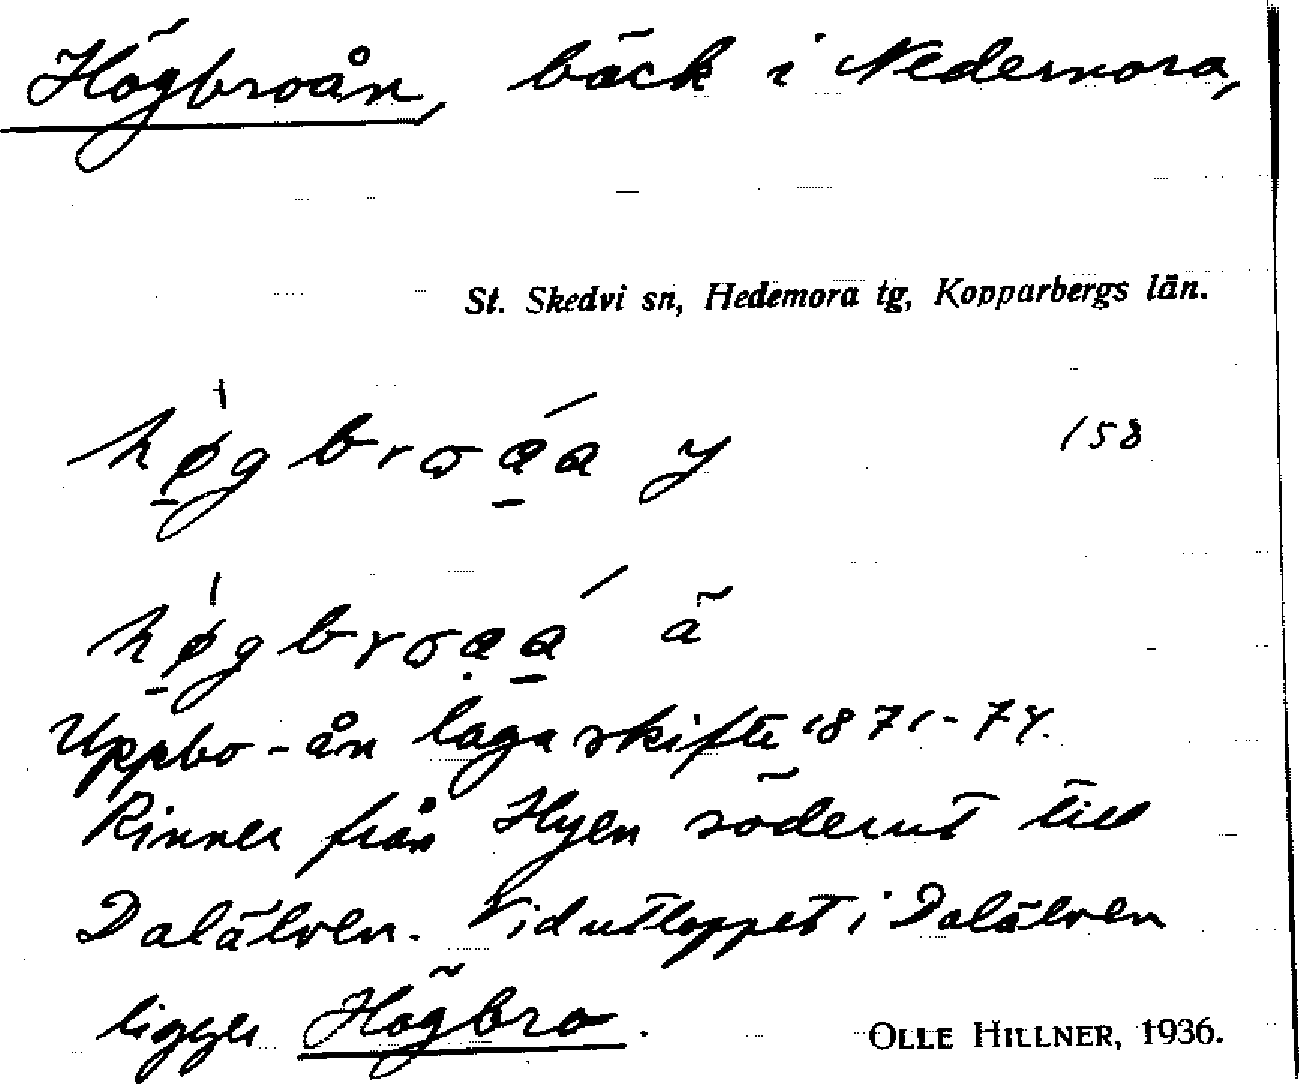 Högbroån, bäck i Nedernora,
St. Skedvi sn, Hedemora tg, Kopparbergs län.
158
Uppbo-ån laga skifte 1871-74.
Rinner från Hyen söderut till
Dalälven. Vid utloppet i Dalälven
ligger Högbro.
OLLE HILLNER, 1936.